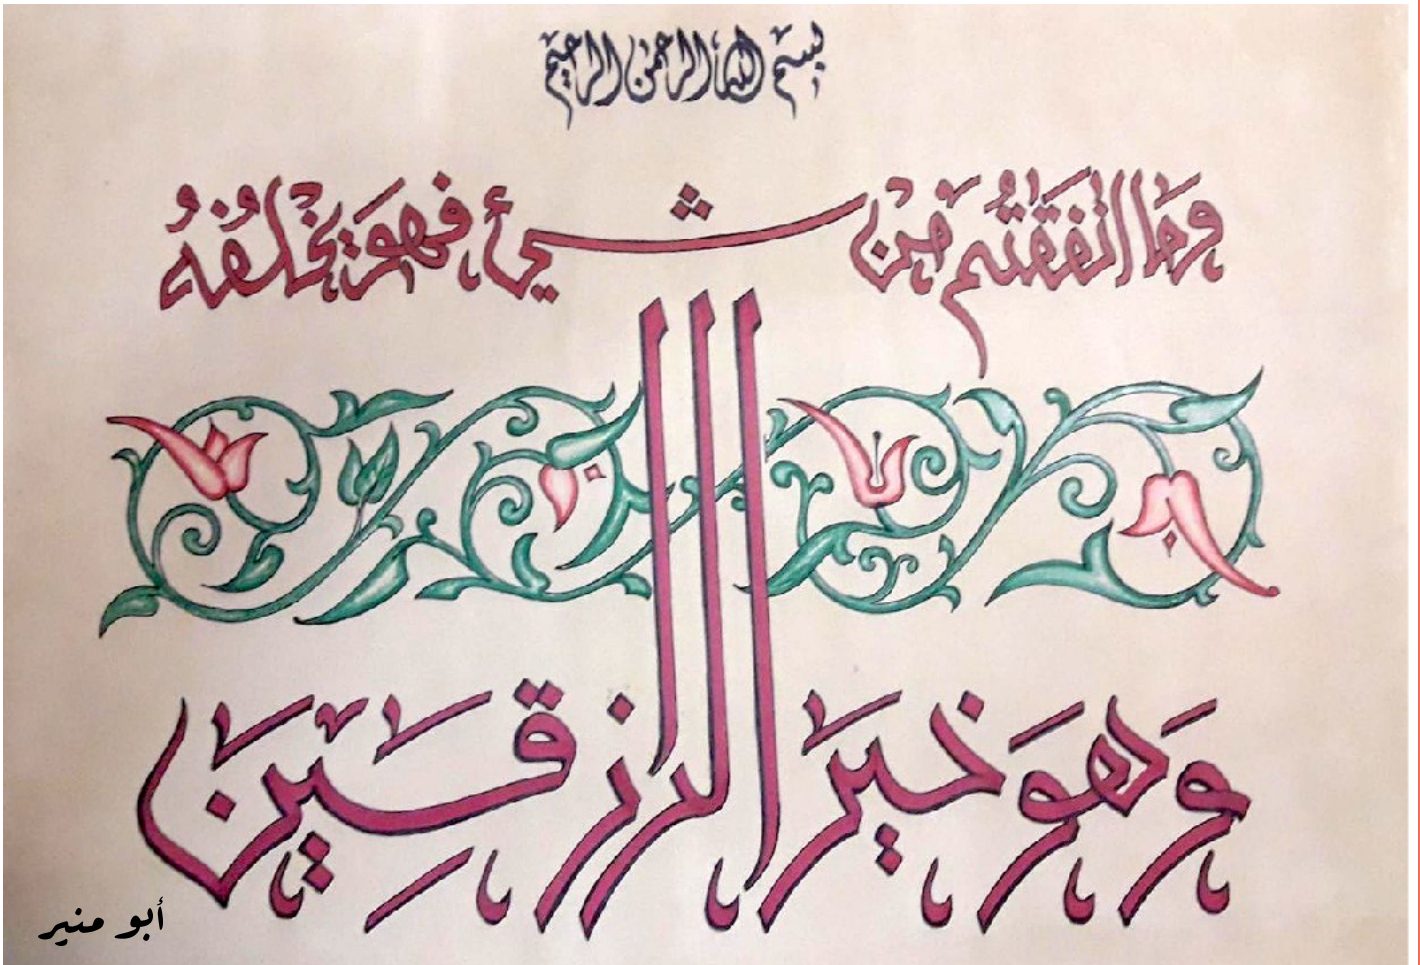 بسم الله الرحمن الرحيم
وَمَا أنفَقْتُم مِّنْ شيءٍ فهوَ يُخْلِفُهُ
وَهوَ خَيرُ الرزقِينَ
أبو منير